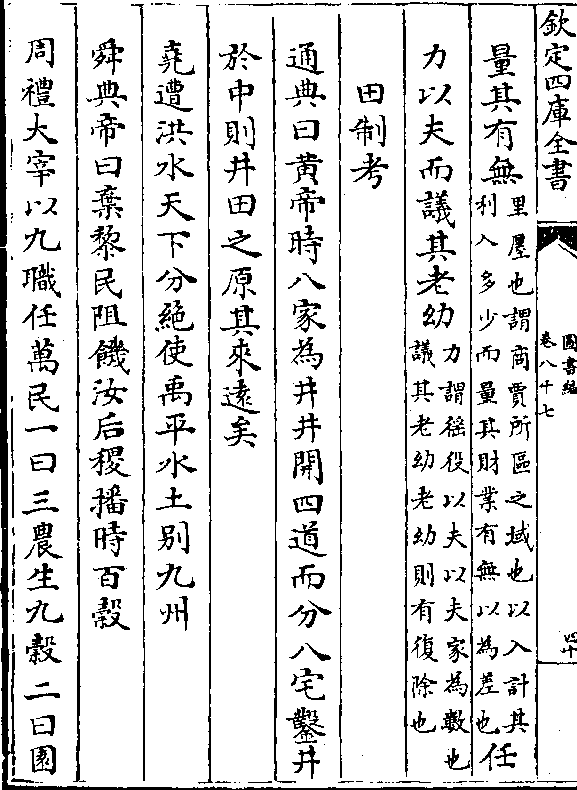 欽定四庫全書
圖書編
卷八十七
四十
量其有無里廛也謂商賈所區之域也以入計其
利入多少而量其財業有無以為差也任
力以夫而議其老幼力謂徭役以夫以夫家為數也
議其老幼老幼則有復除也
田制考
通典曰黃帝時八家為井井開四道而分八宅鑿井
於中則井田之原其來遠矣
堯遭洪水天下分絶使禹平水土别九州
舜典帝曰棄黎民阻饑汝后稷播時百穀
周禮大宰以九職任萬民一曰三農生九穀二曰園